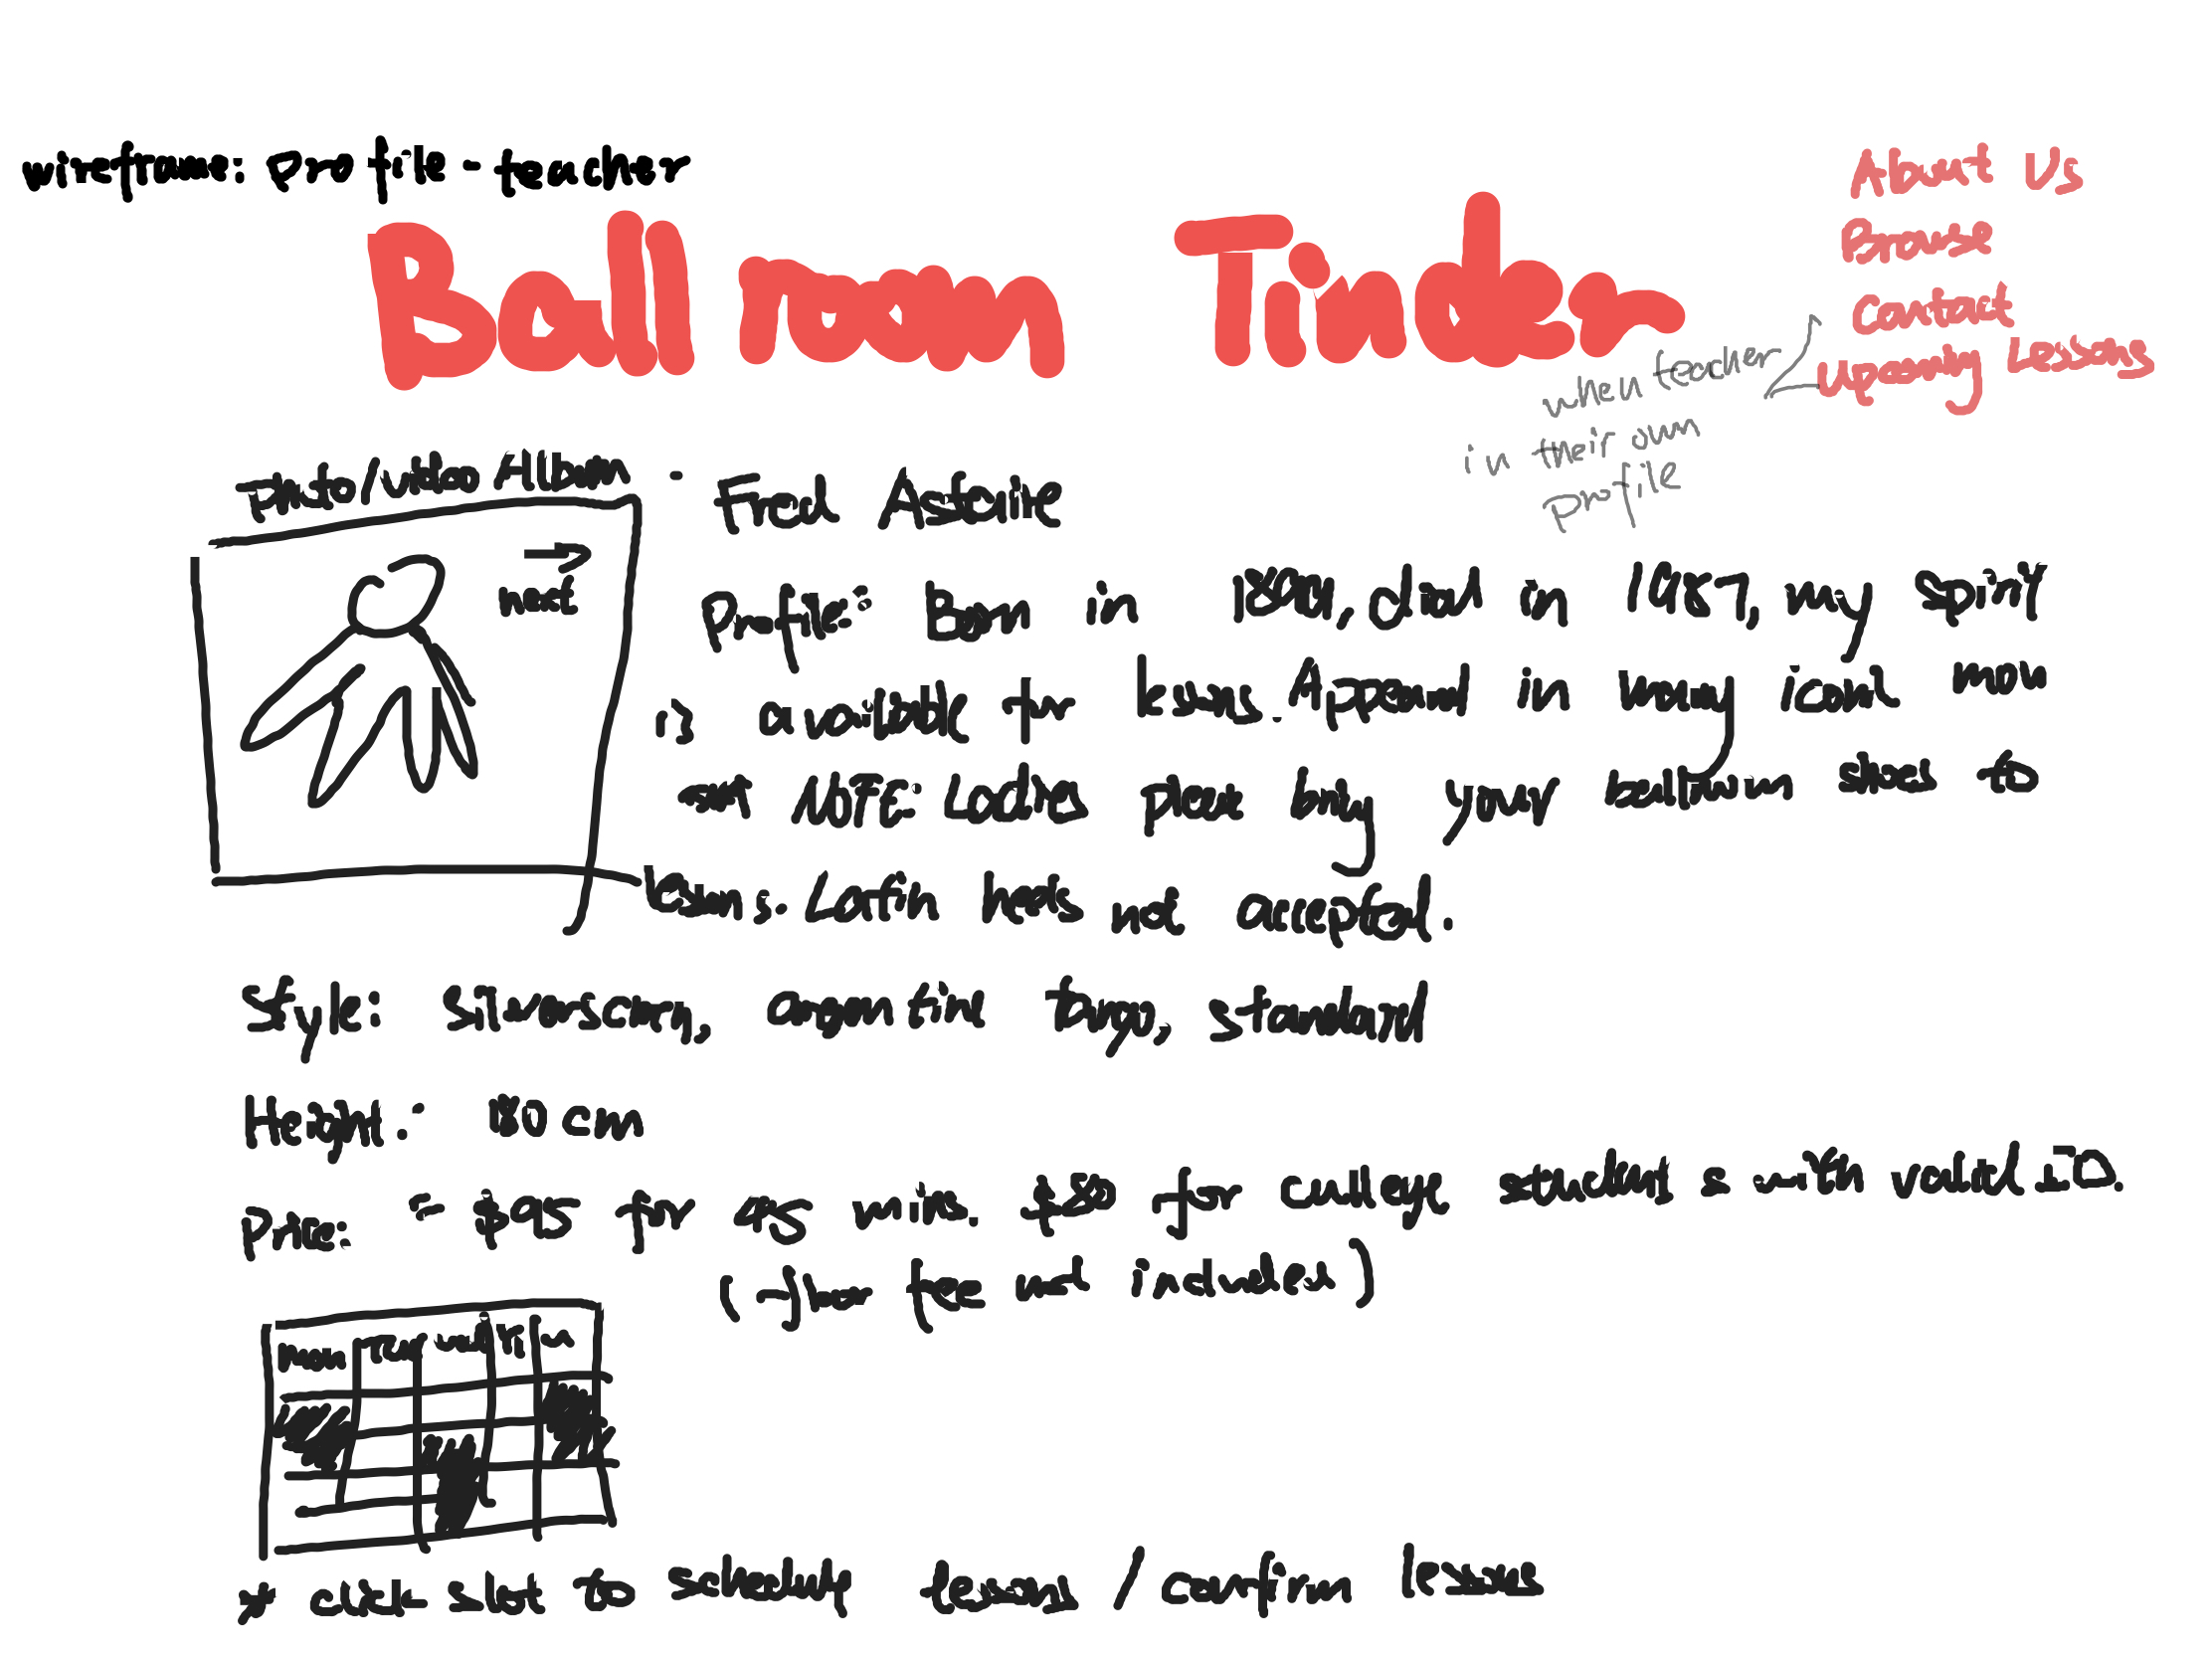 wireframe: profile - teacher
Ballroom Tinder
About Us
Browse
Contact
Upcoming Lessons
when teacher
in their own
profile
Photo/Video Album
next
Fred Astaire
Profile: Born in 1899, died in 1987, my spirit
is available for lessons. Appeared in many iconic mov
NOTE: Ladies please bring your ballroom shoes to
lessons. Latin heels not accepted.
Style: Silverscreen, argentine Tango, standard
Height: 180 cm
Price: - $95 for 45 mins. $80 for college students with valid ID.
(floor fee not included)
Mon Tue Wed Fri
* click slot to schedule lessons / confirm lessons